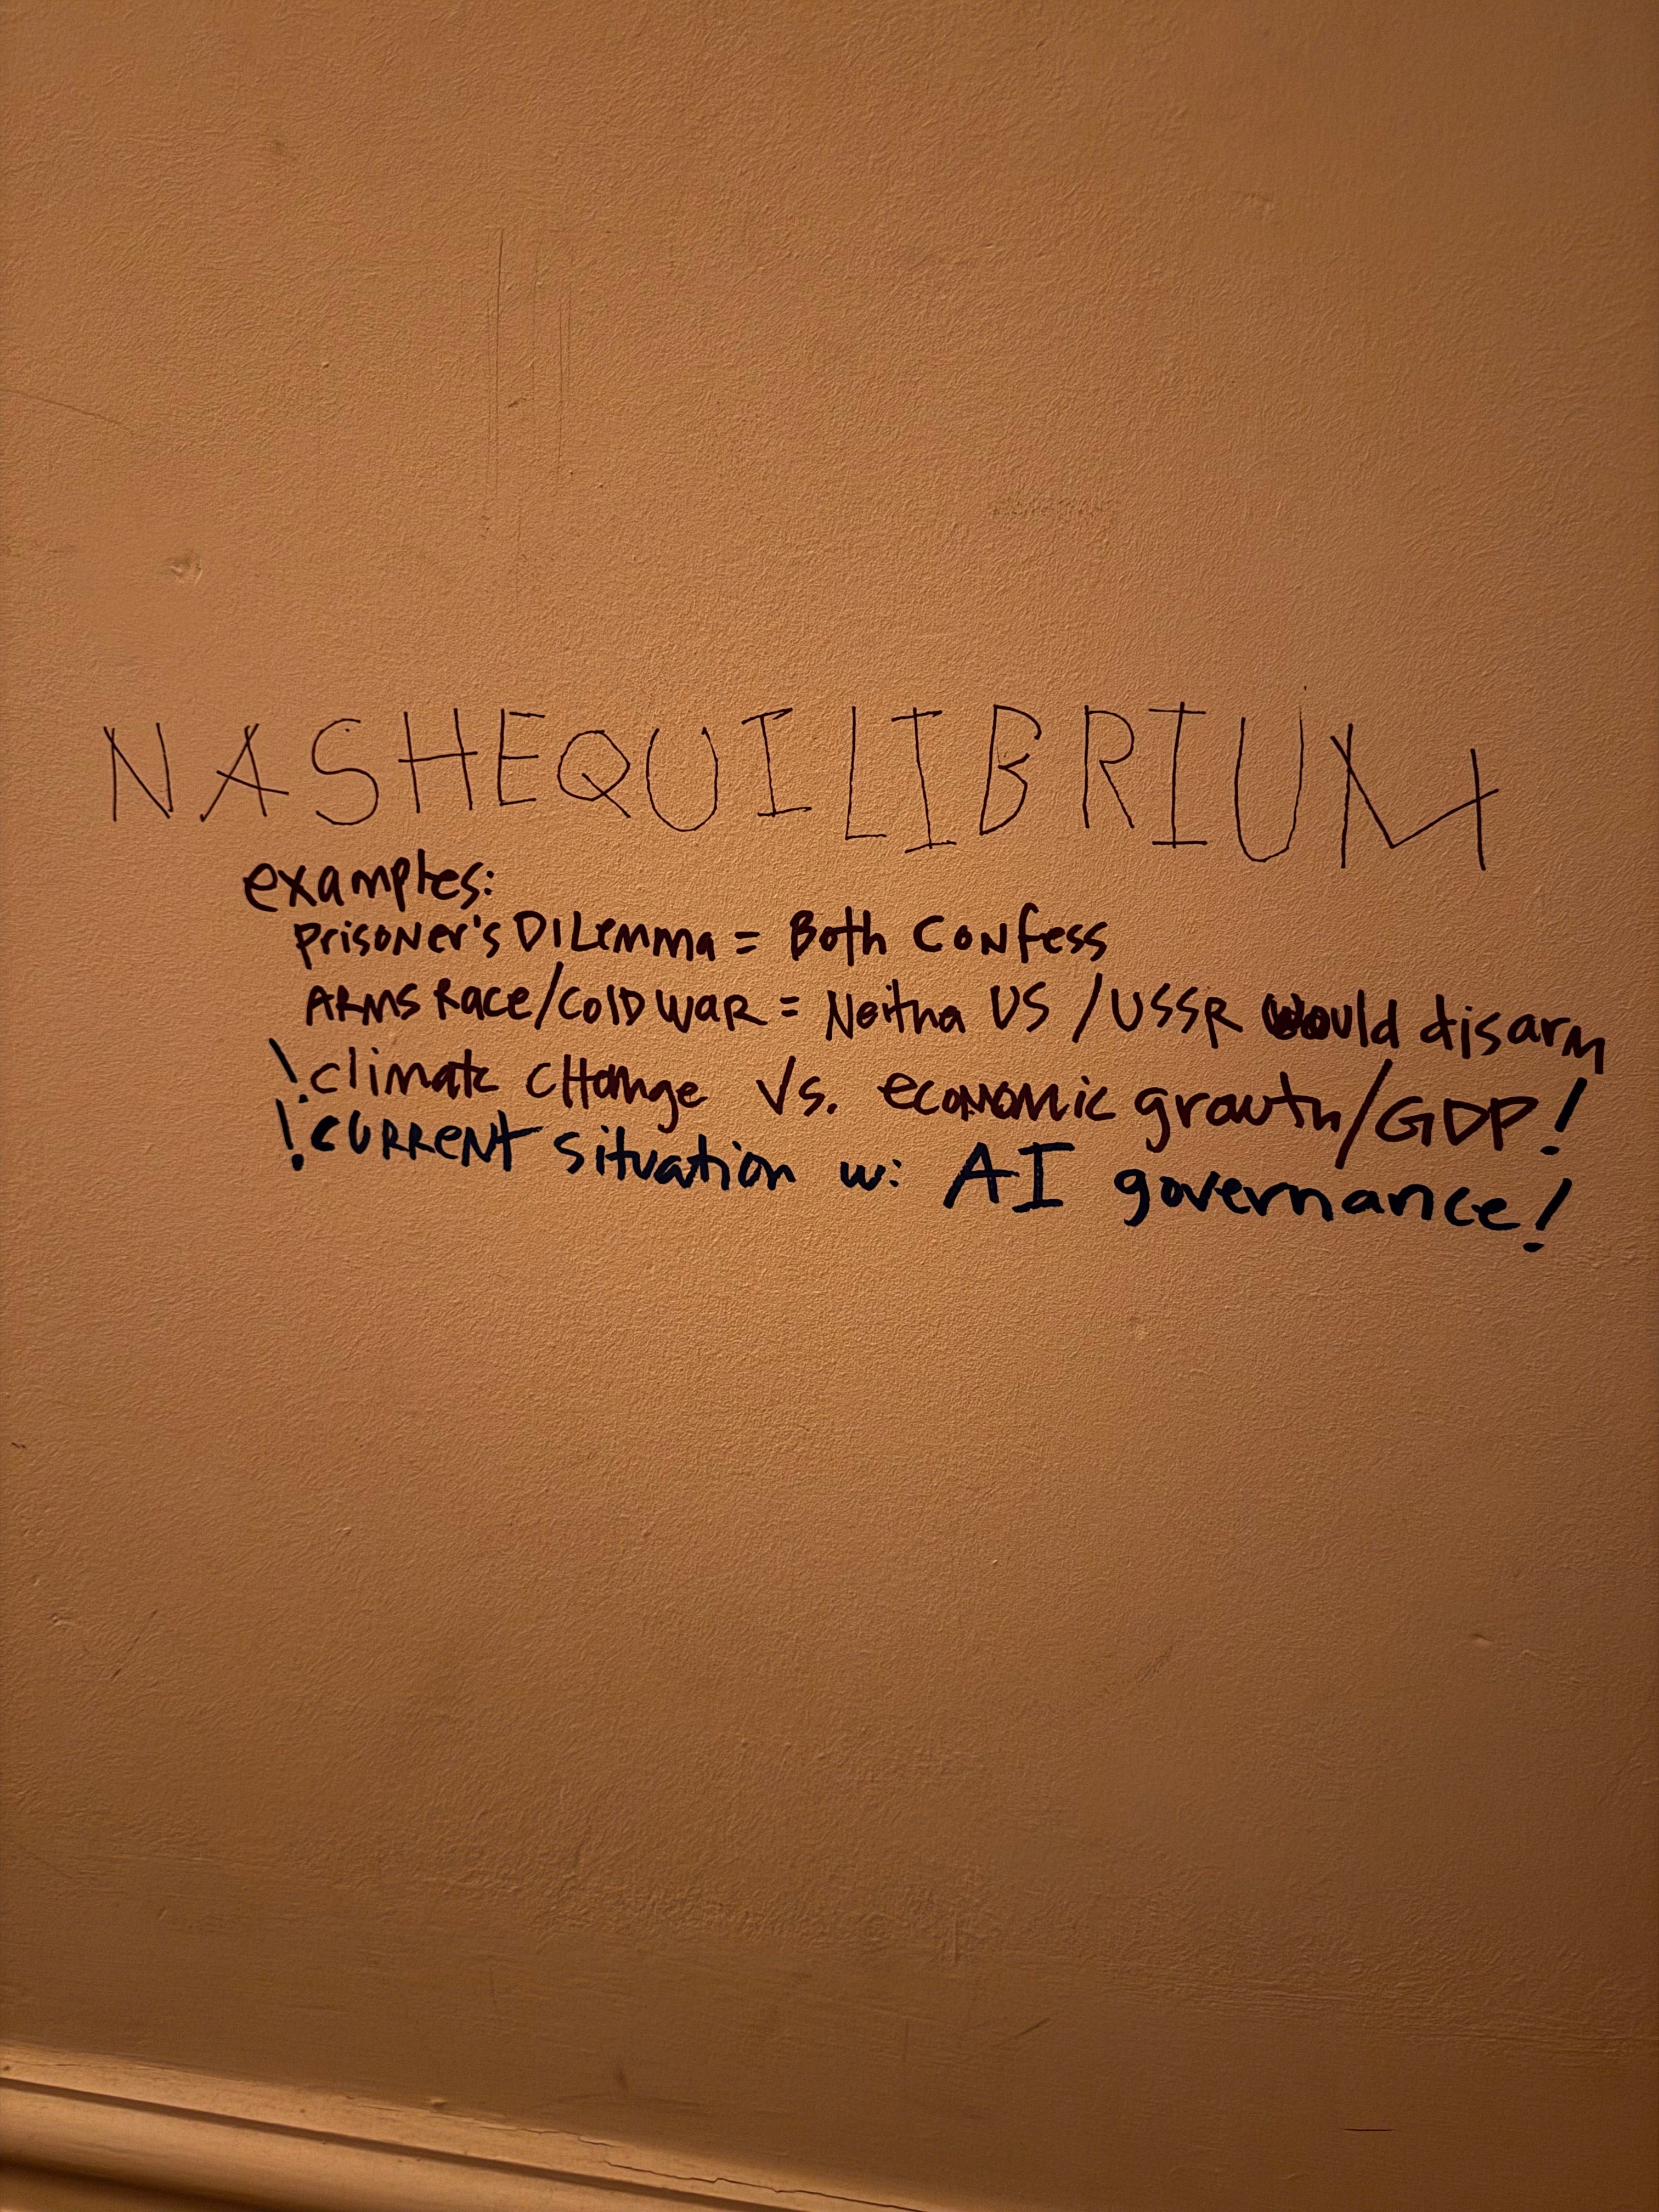 NASHEQUILIBRIUM
examples:
Prisoner's DILemma = Both Confess
ARMS Race/Cold WAR = Neitha US / USSR Would disarm
! climate change Vs. economic growth/GDP!
! CURRENT situation w: AI governance!